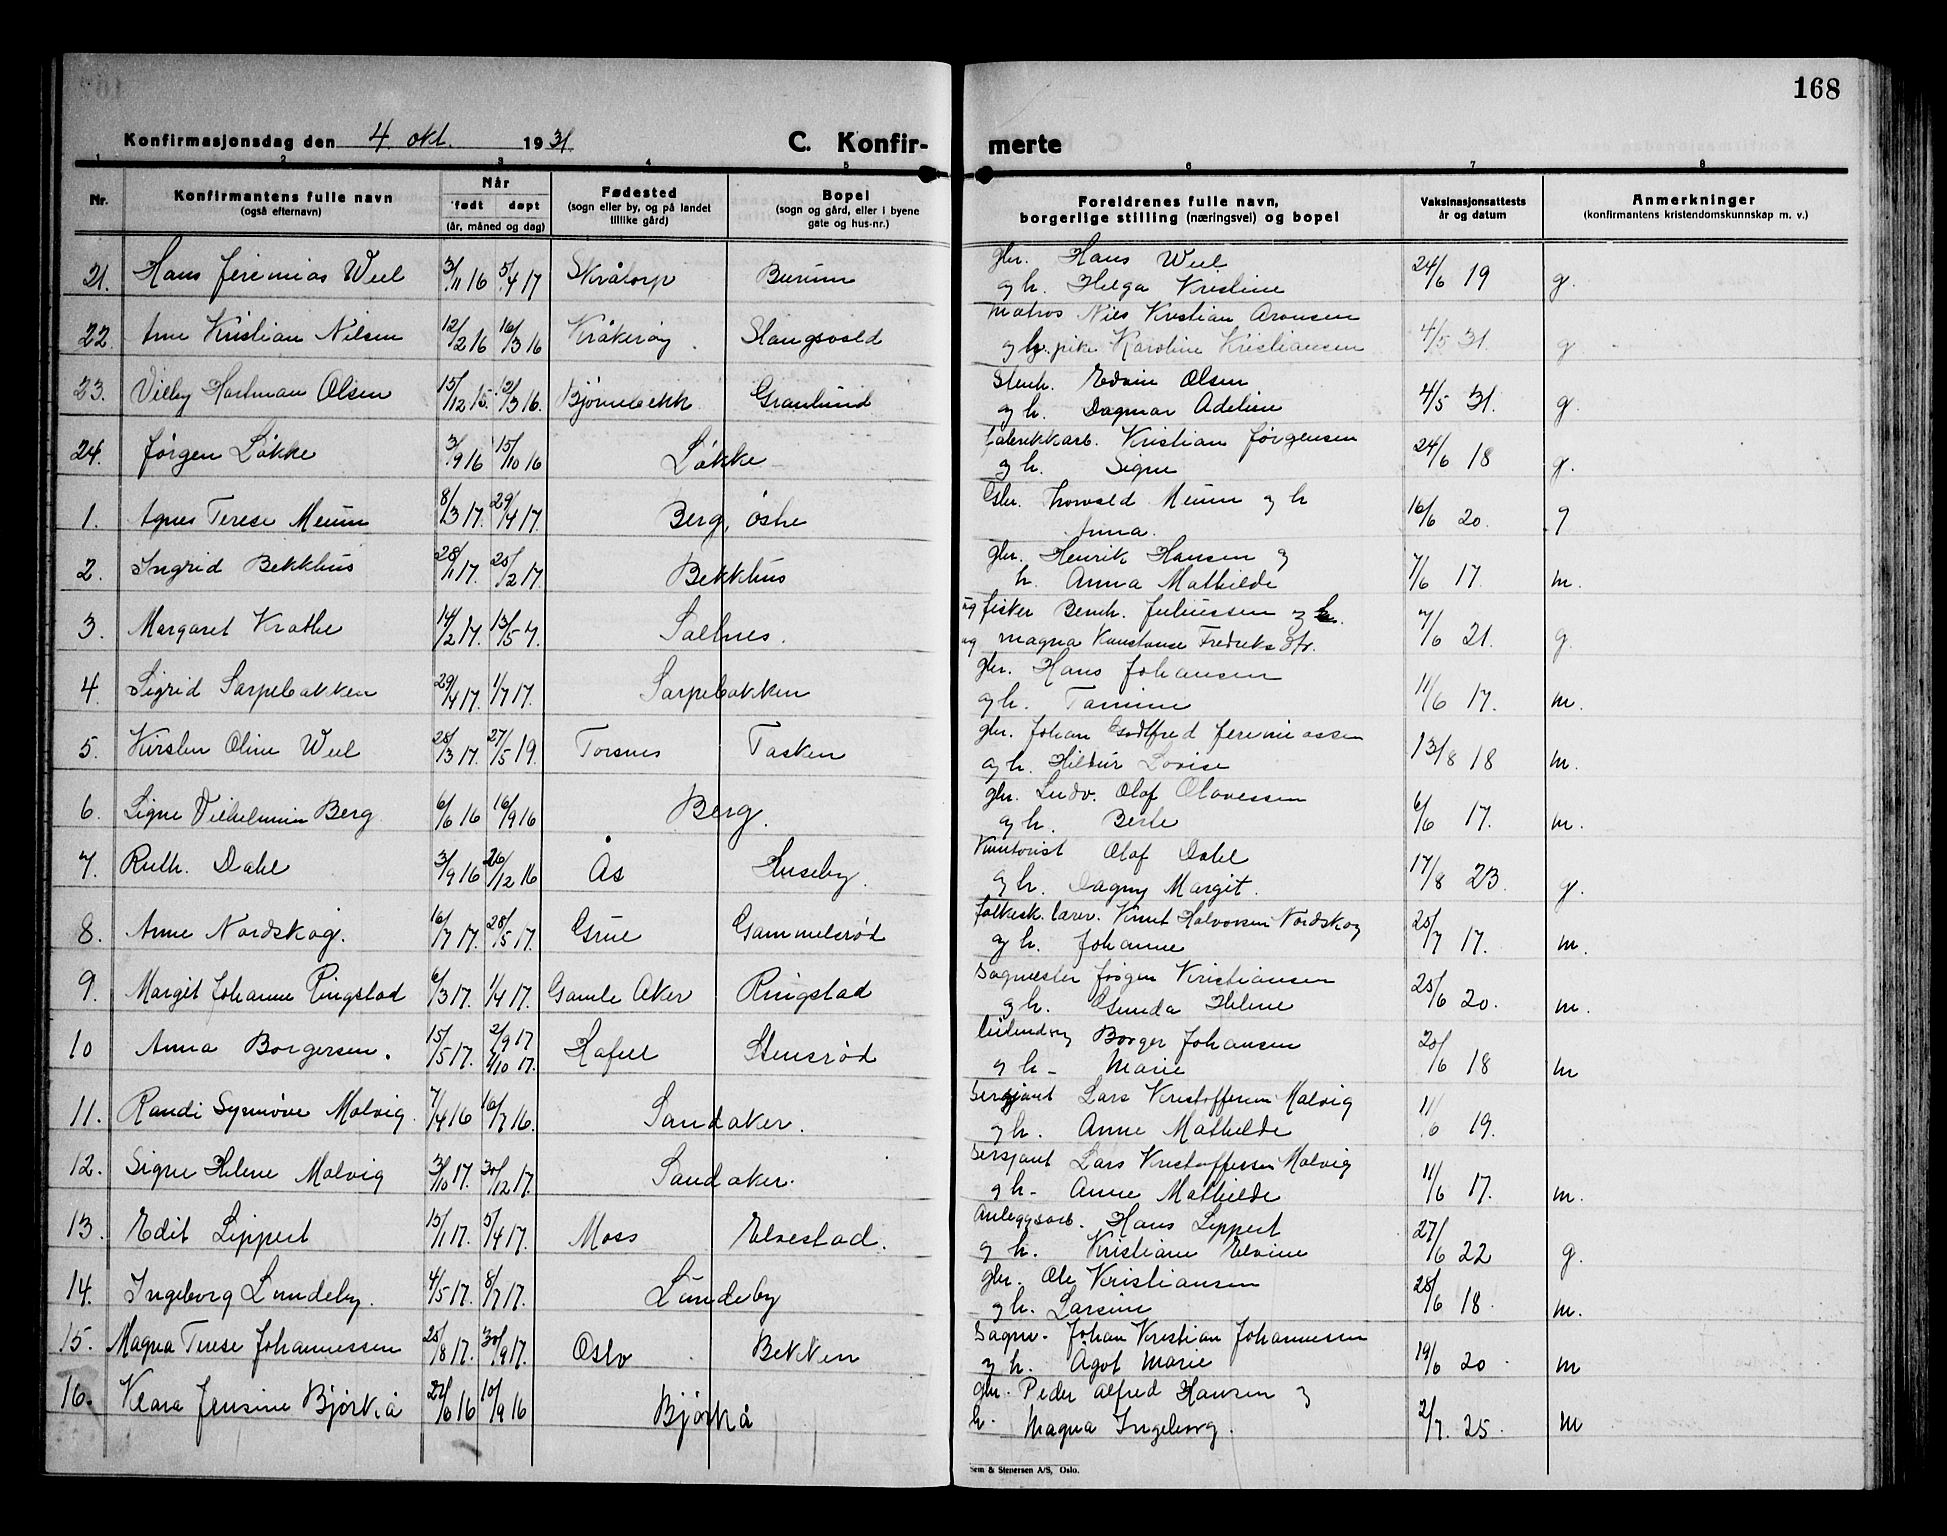 168
Konfirmasjonsdag den 4. okt. 1931. C. Konfir- merte
1 2 3 4 5 6 7 8
Nr. Konfirmantens fulle navn (også efternavn) Når født døpt (år, måned og dag) Fødested (sogn eller by, og på landet tillike gård) Bopel (sogn og gård, eller i byene gate og hus-nr.) Foreldrenes fulle navn, borgerlige stilling (næringsvei) og bopel Vaksinasjonsattests år og datum Anmerkninger (konfirmantens kristendomskunnskap m. v.)
21. Hans Jeremias Weel 3/11 16 5/4 17 Skråtorp Burum gbr. Hans Weel 24/6 19 g.
og h. Helga Kristine
22. Arne Kristian Nilsen 12/2 16 16/3 16 Kråkerøy Slangsvold Matros Nils Kristian Aronsen 4/5 31. g
og pike Karoline Kristiansen
23. Villy Hartman Olsen 15/12 15. 12/3 16. Bjørnebekk Granlund Stenh. Edvin Olsen 4/5 31. g.
og h. Dagmar Adeline
24. Jørgen Løkke 3/9 16 15/10 16 Løkke fabrikkarb. Kristian Jørgensen 24/6 18 g.
og h. Signe
1. Agnes Terese Meum 8/3 17. 29/4 17. Berg, østre Gbr. Thorvald Meum og h 16/6 20. g
Anna.
2. Ingrid Bekkhus 28/1 17. 25/2 17. Bekkhus gbr. Henrik Hansen og 7/6 17. m.
h. Anna Mathilde
3. Margaret Krathe 14/2 17. 13/5 17. Saltnes. ug fisker Bernh. Juliussen og 7/6 21. g.
ug Magna Konstanse Fredriks dtr.
4 Sigrid Sarpebakken 29/4 17. 1/7 17. Sarpebakken gbr. Hans Johansen 11/6 17. m.
og h. Tamine
5. Kirsten Oline Weel 28/3 17. 27/5 19. Torsnes Tasken gbr. Johan Godtfred Jeremiassen 13/8 18 m.
og h. Hildur Lovise
6. Signe Vilhelmine Berg 6/6 16 16/9 16 Berg. gbr. Ludv. Olaf Olavessen 6/6 17. m.
og h. Berte
7 Ruth. Dahl 3/9 16 26/12 16 Ås Huseby. Kontorist Olaf Dahl 17/8 23. g.
og h. Dagny Margit.
8. Anne Nordskog. 16/1 17. 28/5 17. Grue Gammelsrød folkesk. lærer. Knut Halvorsen Nordskog 25/7 17. m.
og h. Johanne
9. Margit Johanne Ringstad 6/3 17. 1/4 17. Gamle Aker Ringstad Sagmester Jørgen Kristiansen 25/6 20. m.
og h. Gunda Helene
10 Anna Borgersen. 15/5 17. 2/9 17 7/10 17. Hafell Stensrød Borger Johansen 20/6 18 m
og h - Marie
11. Randi Synnøve Malvig. 7/4 16 16/7 16. Sandaker. Sersjant Lars Kristoffersen Malvig 11/6 19.
og h. Anne Mathilde
12. Signe Helene Malvig 31/10 17. 30/12 17. Sandaker. Sersjant Lars Kristoffersen Malvig 11/6 17. m.
og h - Anne Mathilde
13. Edit Lippert 15/1 17. 5/4 17. Moss Elvestad. Anleggsarb. Hans Lippert 27/6 22 g.
og h. Kristiane Elvine
14. Ingeborg Lundeby. 4/5 17. 8/7 17. Lundeby gbr. Ole Kristiansen 28/6 18. m.
og h. Larsine
15. Magna Terese Johannessen 25/8 17. 30/9 17. Oslo Bekken Sagm. Johan Kristian Johannesen 19/6 20. m
og h. Ågot Marie
16. Klara Jensine Bjørkå 22/6 16 10/9 16 Bjørkå gbr. Peder Alfred Hansen og 2/7. 25. m
h. Magna Ingeborg.
Sem & Stenersen A/S, Oslo.